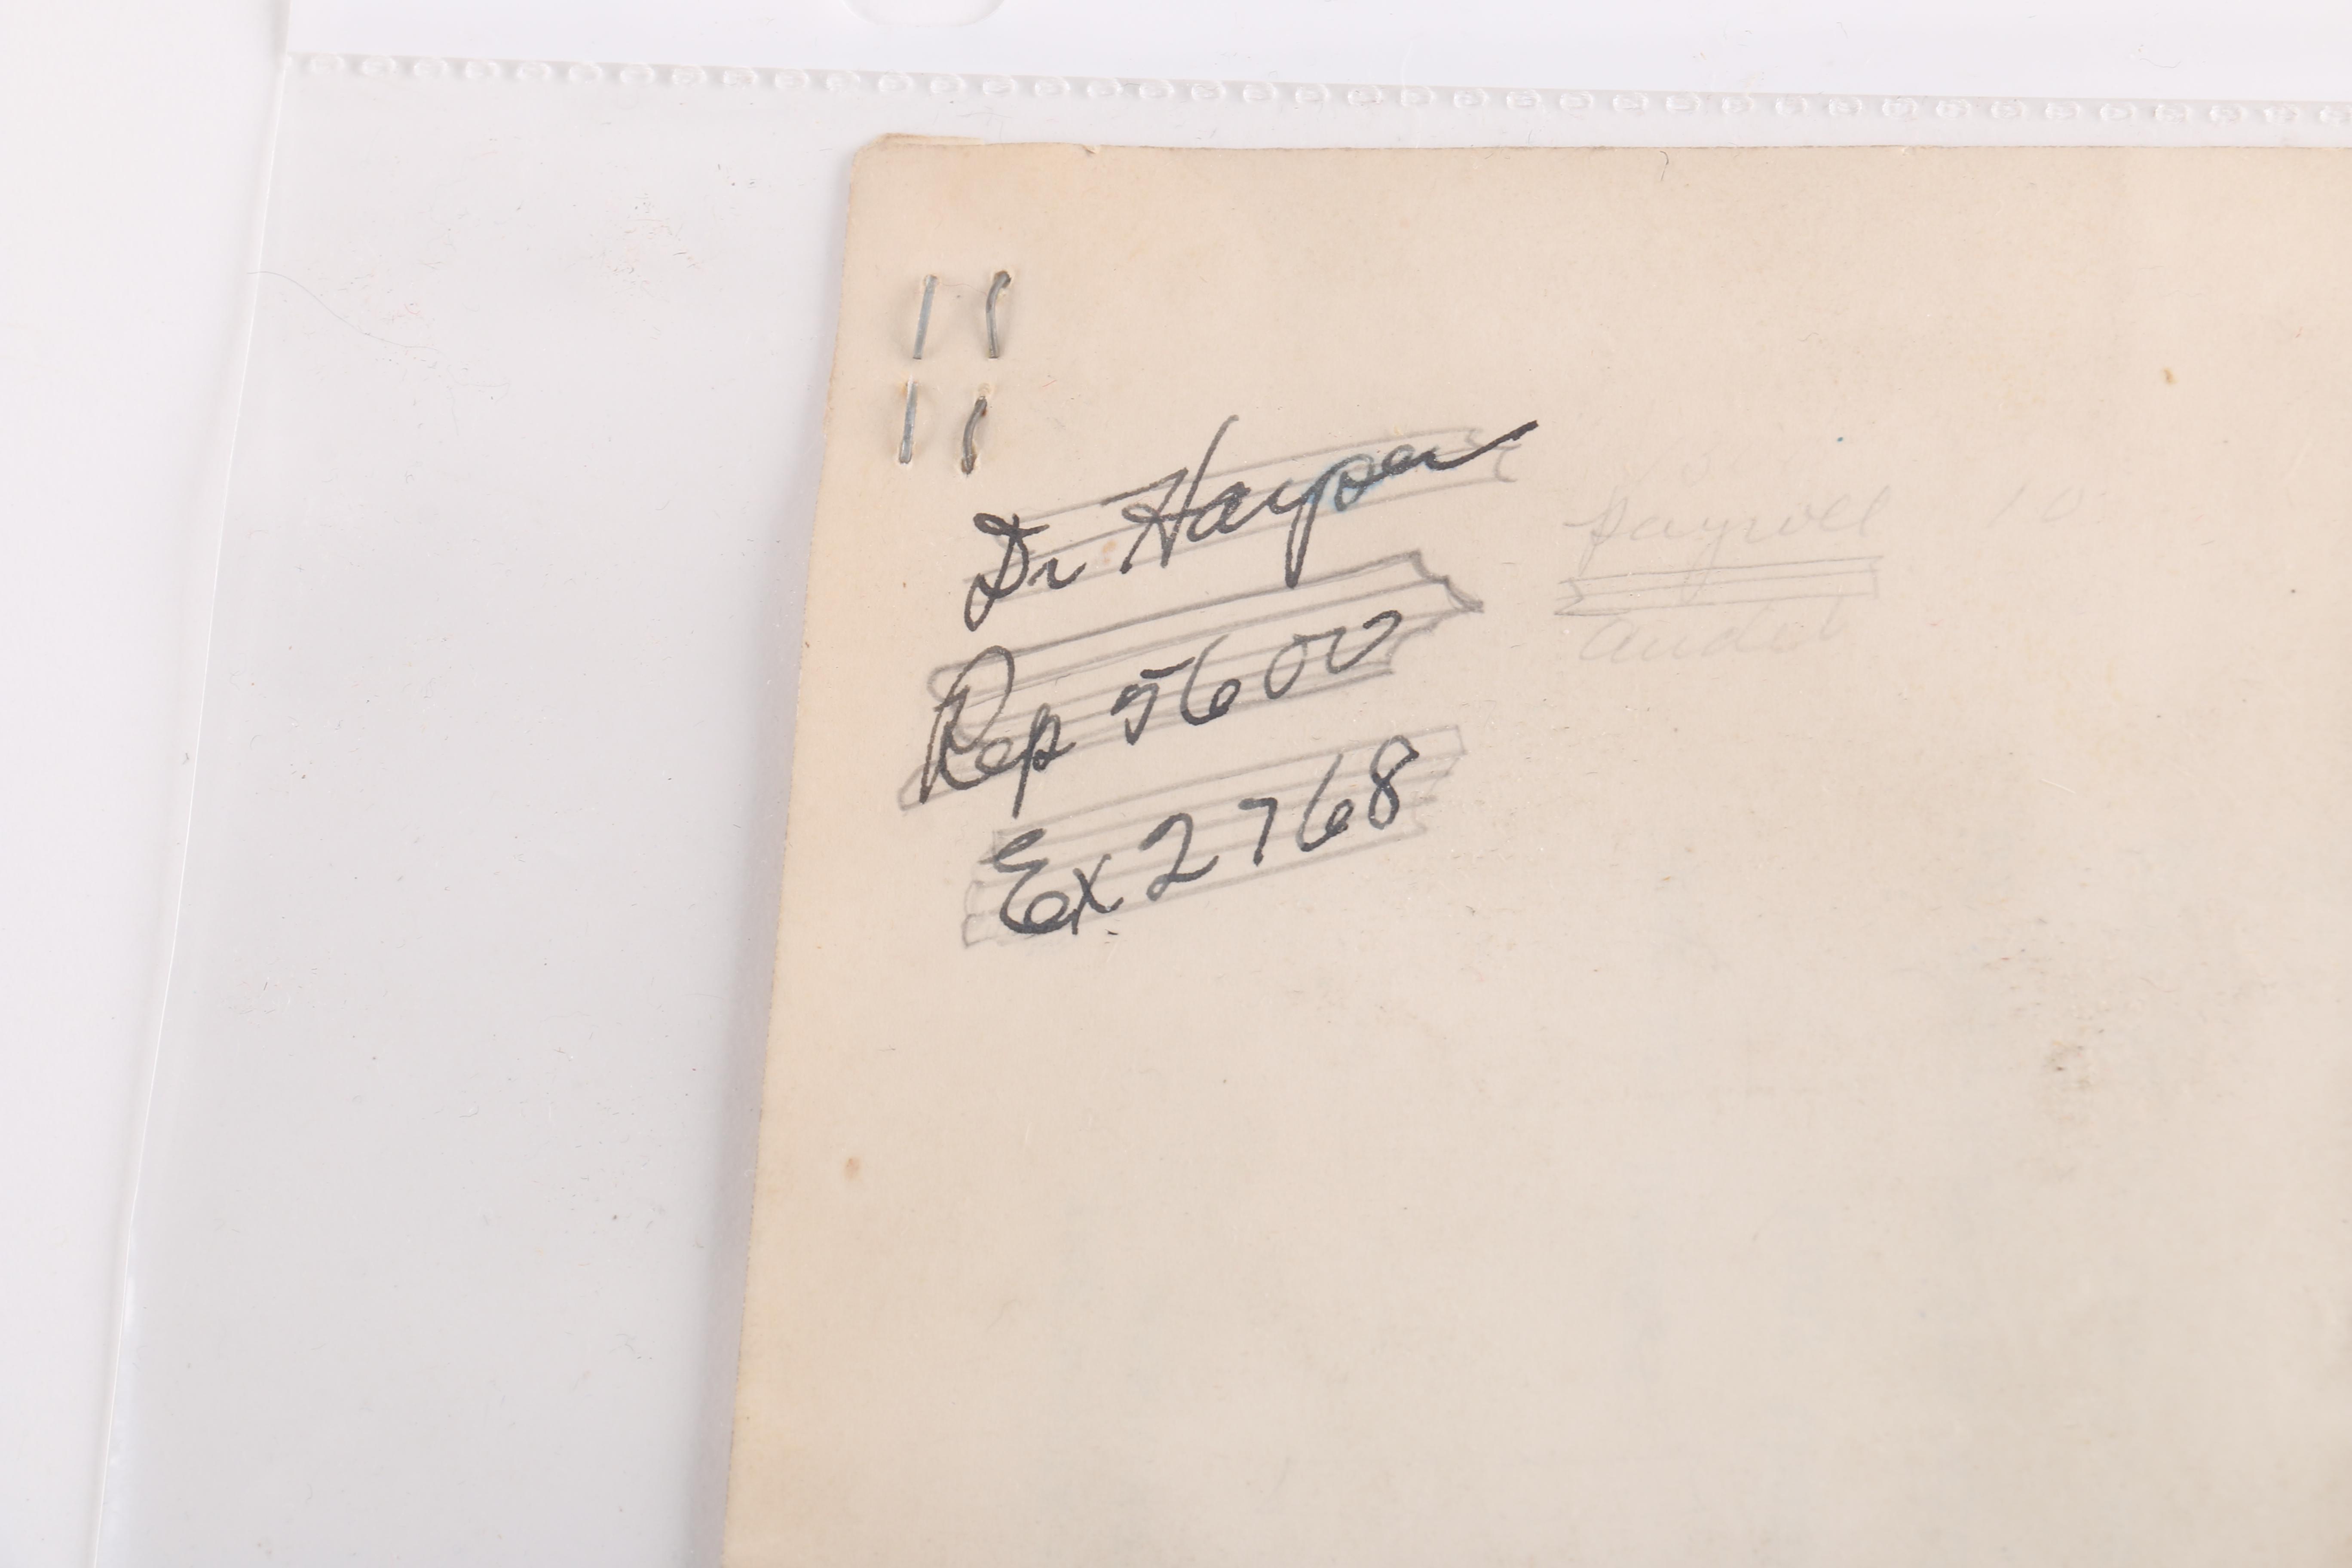 Dr Harper
Rep 5600
Ex 2768
Payroll 10
Audit